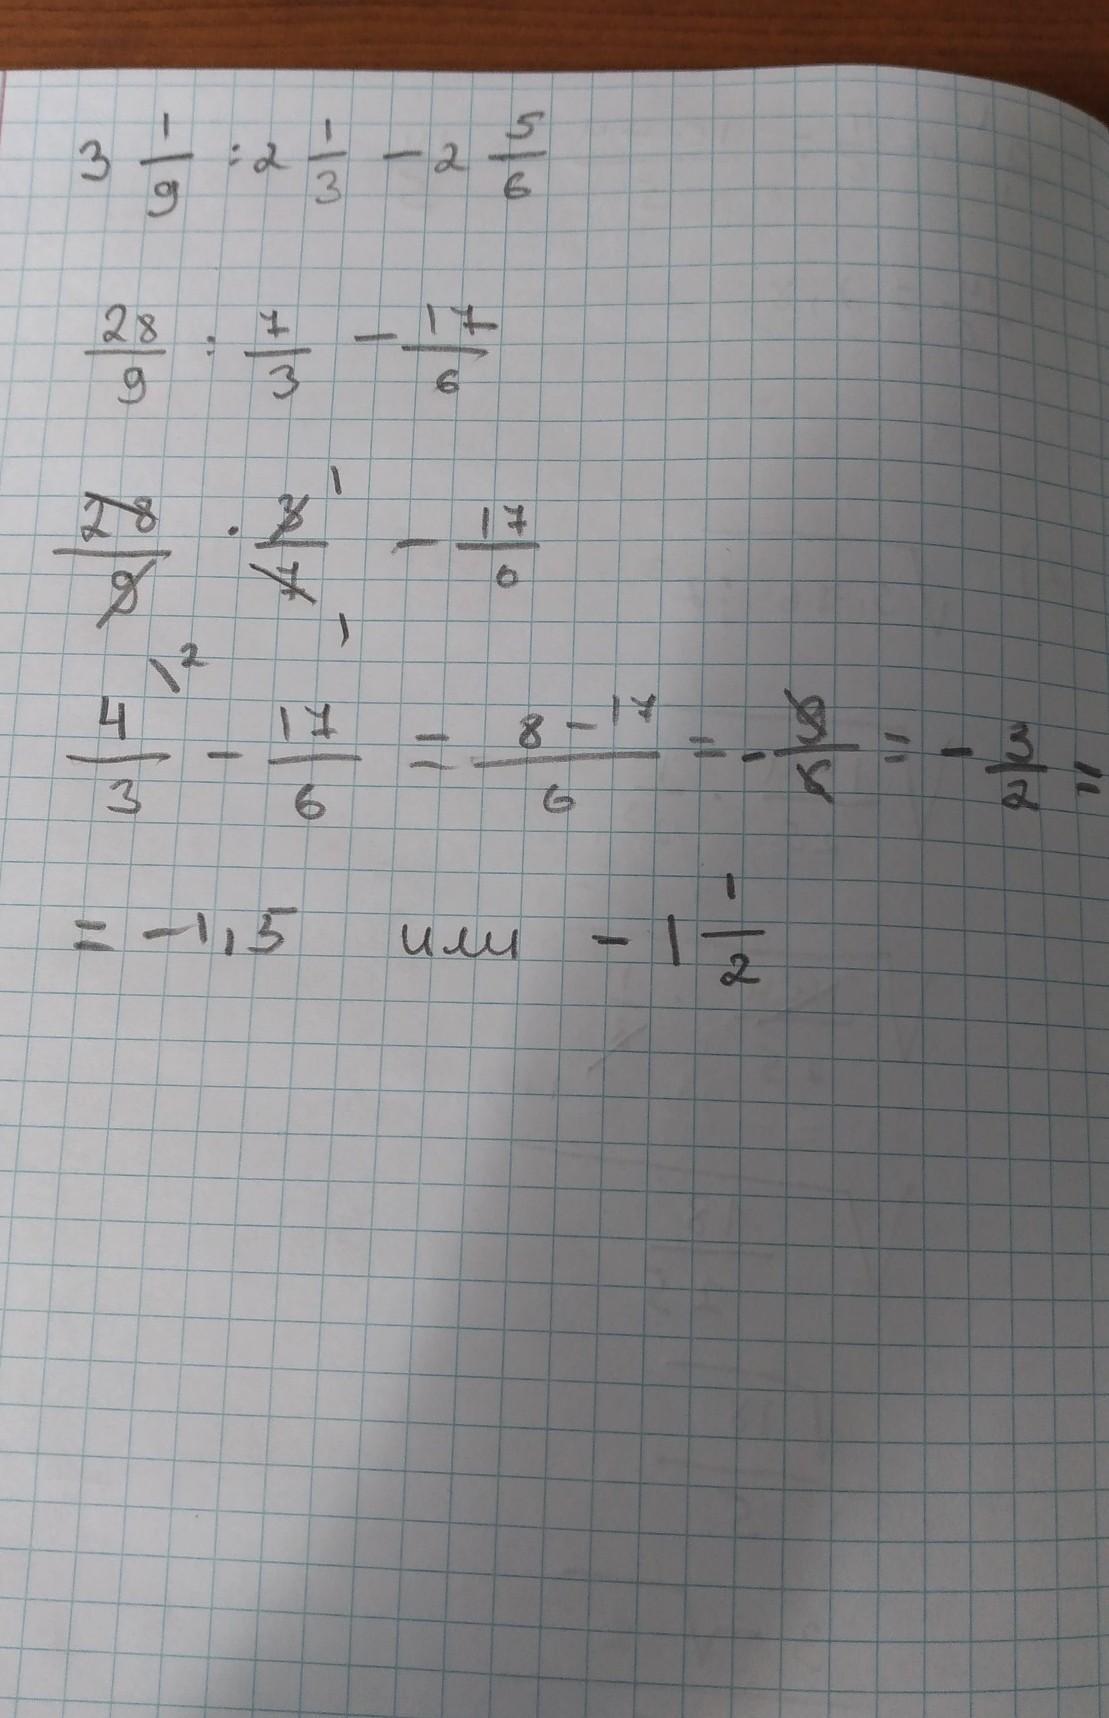 3 1/9 : 2 1/3 - 2 5/6
28/9 : 7/3 - 17/6
28/9 · 3/7 - 17/6 1 1
4/3 \2 - 17/6 = 8-17/6 = - 9/6 = - 3/2 =
= -1,5 или - 1 1/2